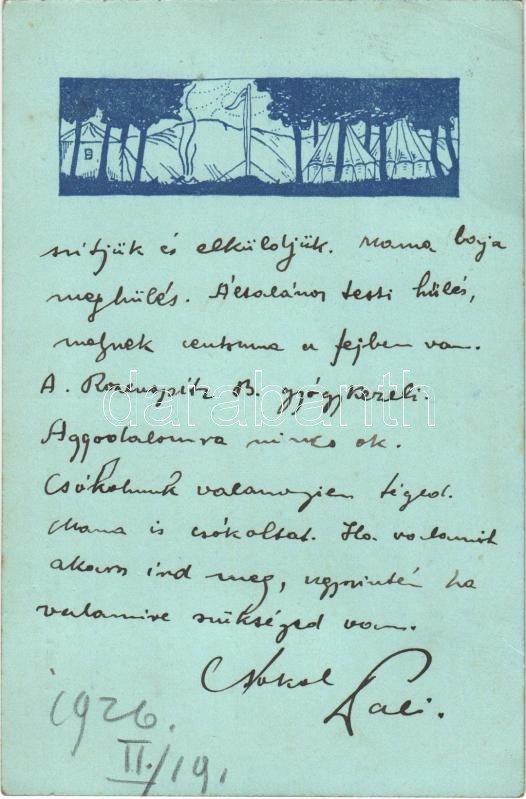 szítjük és elküldjük. Mama baja
meghülés. Általános testi hülés,
melynek centruma a fejben van.
A. B. gyógykezeli.
darabanth
Aggodalomra nincs ok.
Csókolunk valamennyien téged.
Mama is csókoltat. Ha valamit
akarsz írd meg, ugyszintén ha
valamire szükséged van.
Pali.
1926.
II./19.